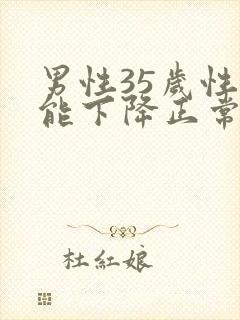 男性35歲性
能下降正常
杜紅娘